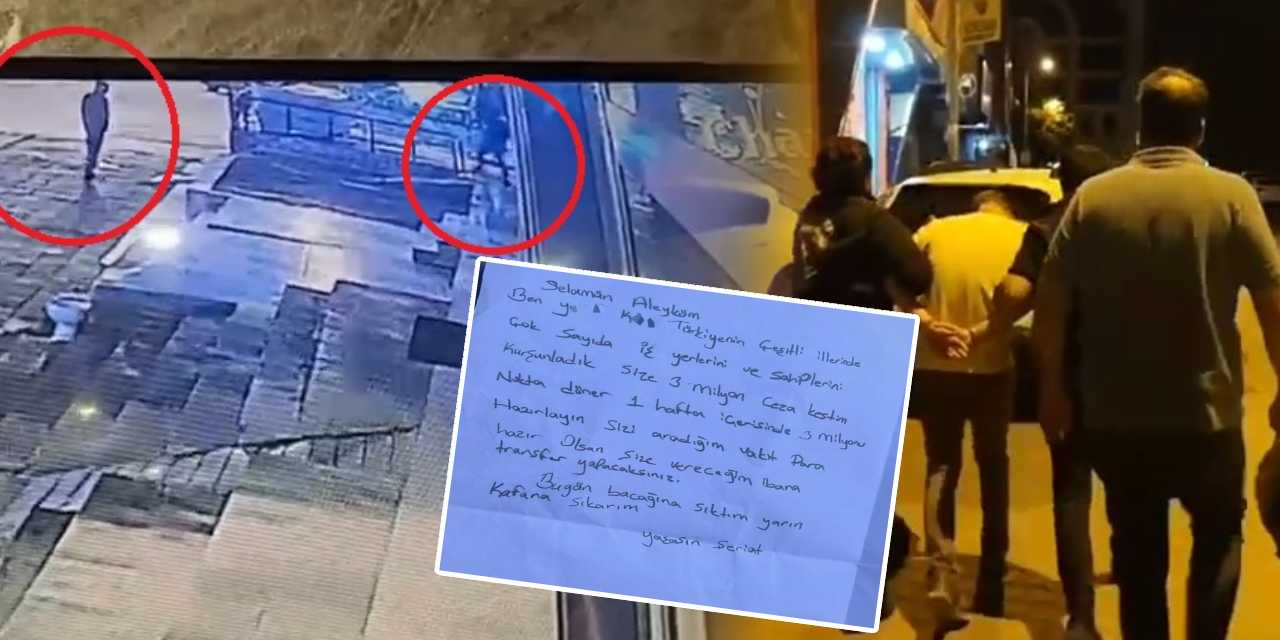 Selamün Aleyküm
Ben Türkiyenin Çeşitli illerinde
Çok Sayıda iş yerlerini ve sahiplerini
Kurşunladık size 3 milyon ceza kestim
Nokta döner 1 hafta içerisinde 3 milyonu
Hazırlayın sizi aradığım vakit Para
hazır Olsan size vereceğim ibana
transfer yapacaksınız.
Bugün bacağına sıktım yarın
Kafana Sıkarım
yaşasın Şeriat